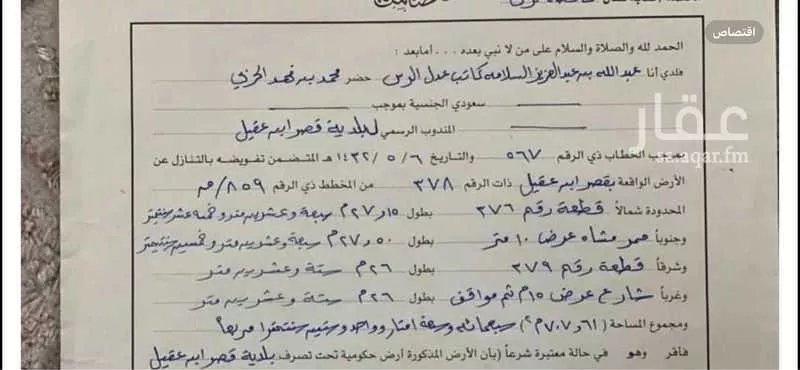 اقتصاص
الحمد لله والصلاة والسلام على من لا نبي بعده . . . أمابعد :
فلدي أنا عبد الله بن عبد العزيز السلامه كاتب عدل الرس حضر محمد بن فهد الحربي
سعودي الجنسية بموجب
المندوب الرسمي لبلدية قصر ابن عقيل
بموجب الخطاب ذي الرقم ٥٦٧ والتاريخ ١٤٣٢/٥/٦ هـ المتضمن تفويضه بالتنازل عن
الأرض الواقعة بقصر ابن عقيل ذات الرقم ٣٧٨ من المخطط ذي الرقم ٨٥٩/ص
المحدودة شمالاً قطعة رقم ٣٧٦ بطول ٢٧,١٥م سبعة وعشرين متر وخمسة عشر سنتمتر
وجنوباً ممر مشاه عرض ١٠ متر بطول ٢٧,٥٠م سبعة وعشرين متر وخمسين سنتمتر
وشرقاً قطعة رقم ٣٧٩ بطول ٢٦م ستة وعشرين متر
وغرباً شارع عرض ١٥م ثم مواقف بطول ٢٦م ستة وعشرين متر
ومجموع المساحة (٧٠٧,٦١م٢) سبعمائة وسبعة امتار وواحد وستين سنتمترا مربعا
فأقر وهو في حالة معتبرة شرعاً (بأن الأرض المذكورة أرض حكومية تحت تصرف بلدية قصر ابن عقيل
عقار
sa.aqar.fm